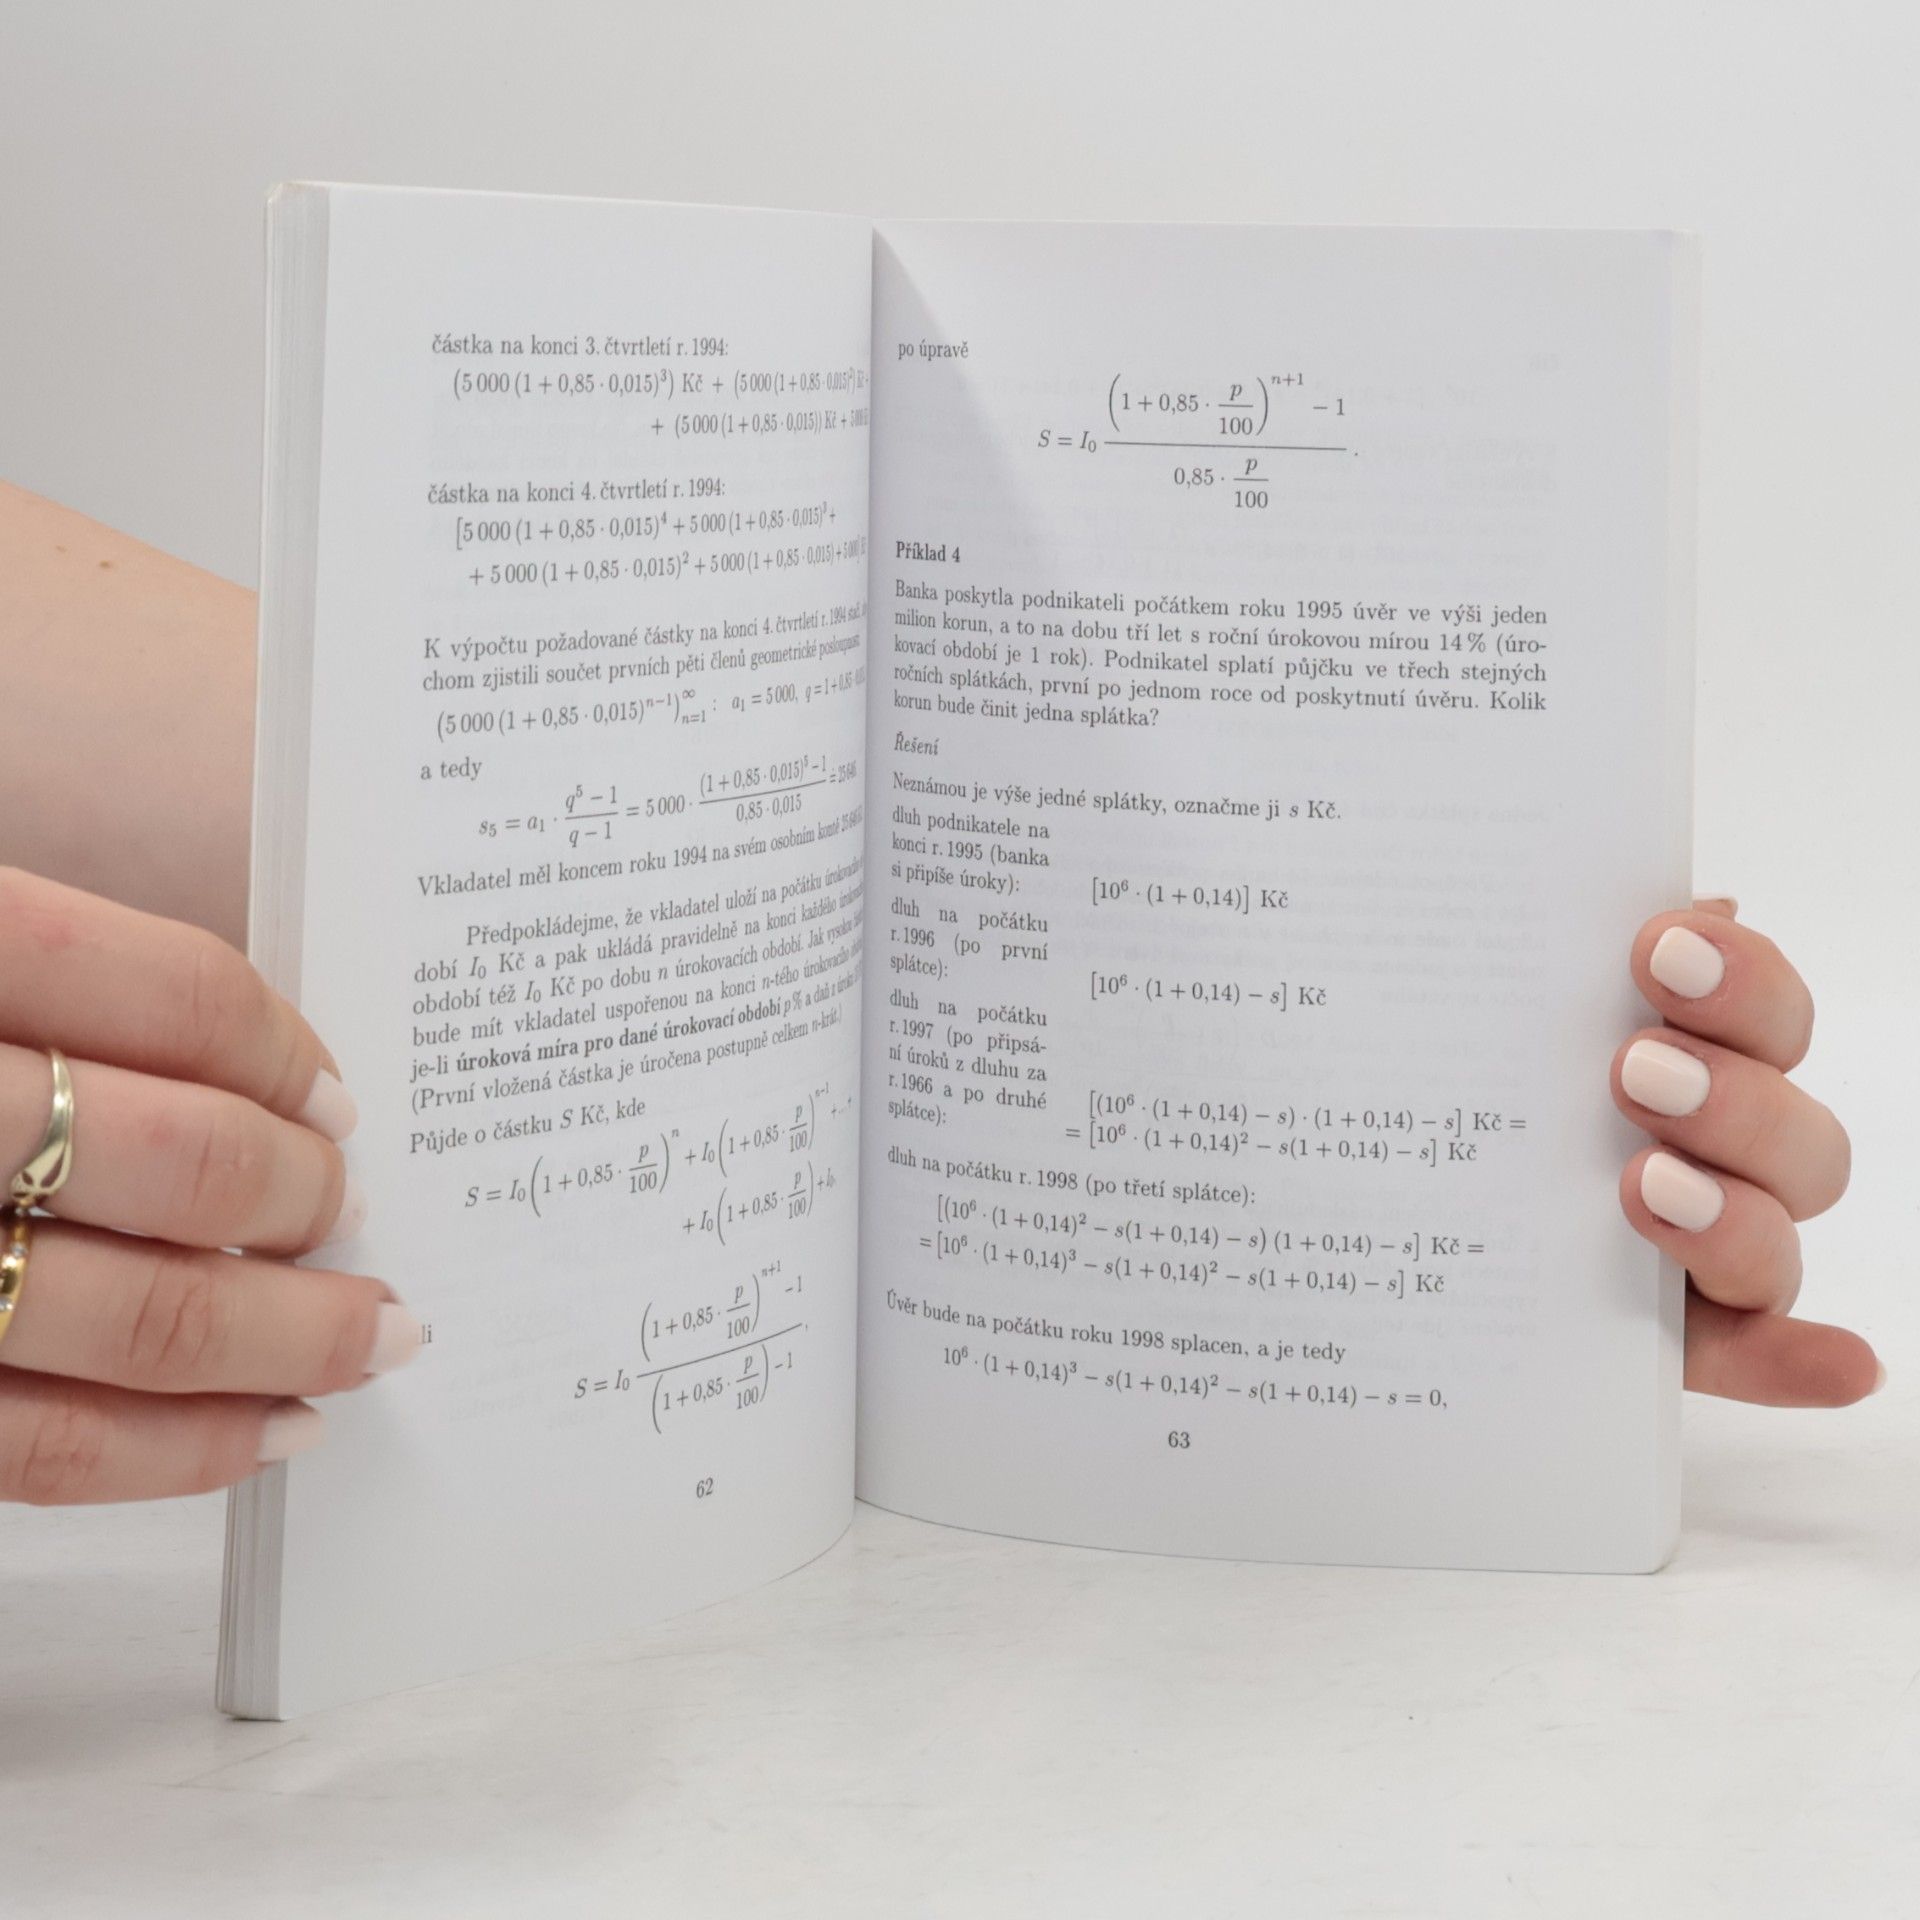 částka na konci 3. čtvrtletí r. 1994:
(5 000 (1 + 0,85 · 0,015)³) Kč + (5 000 (1 + 0,85 · 0,015)²) Kč +
+ (5 000 (1 + 0,85 · 0,015)) Kč + 5 000 Kč
částka na konci 4. čtvrtletí r. 1994:
[5 000 (1 + 0,85 · 0,015)⁴ + 5 000 (1 + 0,85 · 0,015)³ +
+ 5 000 (1 + 0,85 · 0,015)² + 5 000 (1 + 0,85 · 0,015) + 5 000] Kč
K výpočtu požadované částky na konci 4. čtvrtletí r. 1994 stačí,
chom zjistili součet prvních pěti členů geometrické posloupnosti
(5 000 (1 + 0,85 · 0,015)ⁿ⁻¹)∞ₙ₌₁ : a₁ = 5 000, q = 1 + 0,85 · 0,015
a tedy
s₅ = a₁ · (q⁵ − 1)/(q − 1) = 5 000 · ((1 + 0,85 · 0,015)⁵ − 1)/(0,85 · 0,015) ≐ 25 646
Vkladatel měl koncem roku 1994 na svém osobním kontě 25 646 Kč
Předpokládejme, že vkladatel uloží na počátku úrokovacího
dobí I₀ Kč a pak ukládá pravidelně na konci každého úrokovacího
období též I₀ Kč po dobu n úrokovacích období. Jak vysokou
bude mít vkladatel uspořenou na konci n-tého úrokovacího
je-li úroková míra pro dané úrokovací období p % a daň z úroků
(První vložená částka je úročena postupně celkem n-krát.)
Půjde o částku S Kč, kde
S = I₀(1 + 0,85 · p/100)ⁿ + I₀(1 + 0,85 · p/100)ⁿ⁻¹ + … +
+ I₀(1 + 0,85 · p/100) + I₀,
li
S = I₀ ((1 + 0,85 · p/100)ⁿ⁺¹ − 1)/((1 + 0,85 · p/100) − 1),
62
po úpravě
S = I₀ ((1 + 0,85 · p/100)ⁿ⁺¹ − 1)/(0,85 · p/100).
Příklad 4
Banka poskytla podnikateli počátkem roku 1995 úvěr ve výši jeden
milion korun, a to na dobu tří let s roční úrokovou mírou 14 % (úro-
kovací období je 1 rok). Podnikatel splatí půjčku ve třech stejných
ročních splátkách, první po jednom roce od poskytnutí úvěru. Kolik
korun bude činit jedna splátka?
Řešení
Neznámou je výše jedné splátky, označme ji s Kč.
dluh podnikatele na
konci r. 1995 (banka
si připíše úroky): [10⁶ · (1 + 0,14)] Kč
dluh na počátku
r. 1996 (po první
splátce): [10⁶ · (1 + 0,14) − s] Kč
dluh na počátku
r. 1997 (po připsá-
ní úroků z dluhu za
r. 1966 a po druhé
splátce): [(10⁶ · (1 + 0,14) − s) · (1 + 0,14) − s] Kč =
= [10⁶ · (1 + 0,14)² − s(1 + 0,14) − s] Kč
dluh na počátku r. 1998 (po třetí splátce):
[(10⁶ · (1 + 0,14)² − s(1 + 0,14) − s) (1 + 0,14) − s] Kč =
= [10⁶ · (1 + 0,14)³ − s(1 + 0,14)² − s(1 + 0,14) − s] Kč
Úvěr bude na počátku roku 1998 splacen, a je tedy
10⁶ · (1 + 0,14)³ − s(1 + 0,14)² − s(1 + 0,14) − s = 0,
63